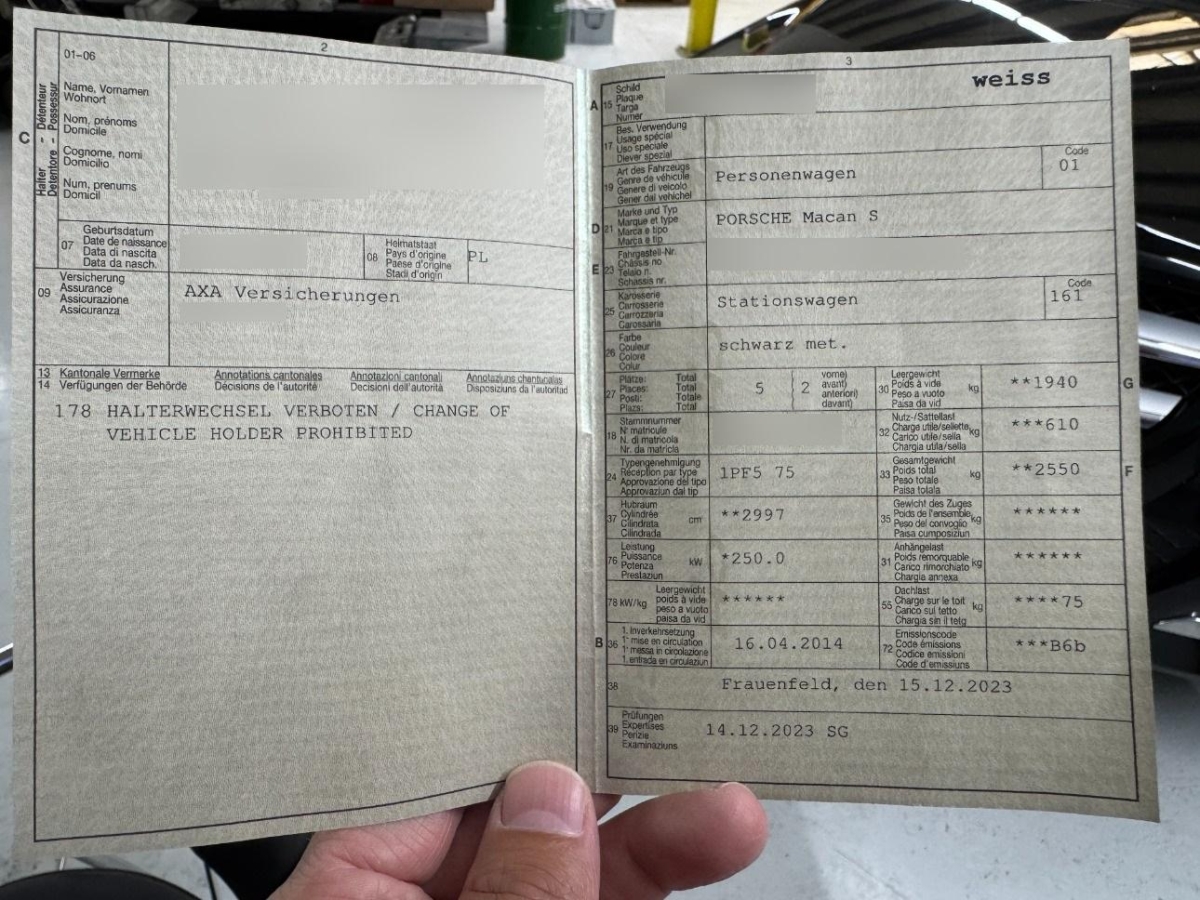 2
01-06
Halter - Détenteur
Detentore - Possessur
C
Name, Vornamen
Wohnort
Nom, prénoms
Domicile
Cognome, nomi
Domicilio
Num, prenums
Domicil
07
Geburtsdatum
Date de naissance
Data di nascita
Data da nasch.
08
Heimatstaat
Pays d'origine
Paese d'origine
Stadi d'origin
PL
09
Versicherung
Assurance
Assicurazione
Assicuranza
AXA Versicherungen
13 Kantonale Vermerke Annotations cantonales Annotazioni cantonali Annotaziuns chantunalas
14 Verfügungen der Behörde Décisions de l'autorité Decisioni dell'autorità Disposiziuns da l'autoritad
178 HALTERWECHSEL VERBOTEN / CHANGE OF
VEHICLE HOLDER PROHIBITED
3
A 15
Schild
Plaque
Targa
Numer
weiss
17
Bes. Verwendung
Usage spécial
Uso speciale
Diever spezial
19
Art des Fahrzeugs
Genre de véhicule
Genere di veicolo
Gener dal vehichel
Personenwagen
Code
01
D 21
Marke und Typ
Marque et type
Marca e tipo
Marca e tip
PORSCHE Macan S
E 23
Fahrgestell-Nr.
Châssis no
Telaio n.
Schassis nr.
25
Karosserie
Carrosserie
Carrozzeria
Carossaria
Stationswagen
Code
161
26
Farbe
Couleur
Colore
Colur
schwarz met.
27
Plätze: Total
Places: Total
Posti: Totale
Plazs: Total
5
2
vorne)
avant)
anteriori)
davant)
30
Leergewicht
Poids à vide
Peso a vuoto
Paisa da vid
kg
**1940
G
18
Stammnummer
N° matricule
N. di matricola
Nr. da matricla
32
Nutz-/Sattellast
Charge utile/sellette
Carico utile/sella
Chargia utila/sella
kg
***610
24
Typengenehmigung
Réception par type
Approvazione del tipo
Approvaziun dal tip
1PF5 75
33
Gesamtgewicht
Poids total
Peso totale
Paisa totala
kg
**2550
F
37
Hubraum
Cylindrée
Cilindrata
Cilindrada
cm
**2997
35
Gewicht des Zuges
Poids de l'ensemble
Peso del convoglio
Paisa cumposiziun
kg
******
76
Leistung
Puissance
Potenza
Prestaziun
kW
*250.0
31
Anhängelast
Poids remorquable
Carico rimorchiato
Chargia annexa
kg
******
78 kW/kg
Leergewicht
poids à vide
peso a vuoto
paisa da vid
******
55
Dachlast
Charge sur le toit
Carico sul tetto
Chargia sin il tetg
kg
****75
B 36
1. Inverkehrsetzung
1ᵉ mise en circulation
1ᵃ messa in circolazione
1. entrada en circulaziun
16.04.2014
72
Emissionscode
Code émissions
Codice emissioni
Code d'emissiuns
***B6b
38
Frauenfeld, den 15.12.2023
39
Prüfungen
Expertises
Perizie
Examinaziuns
14.12.2023 SG